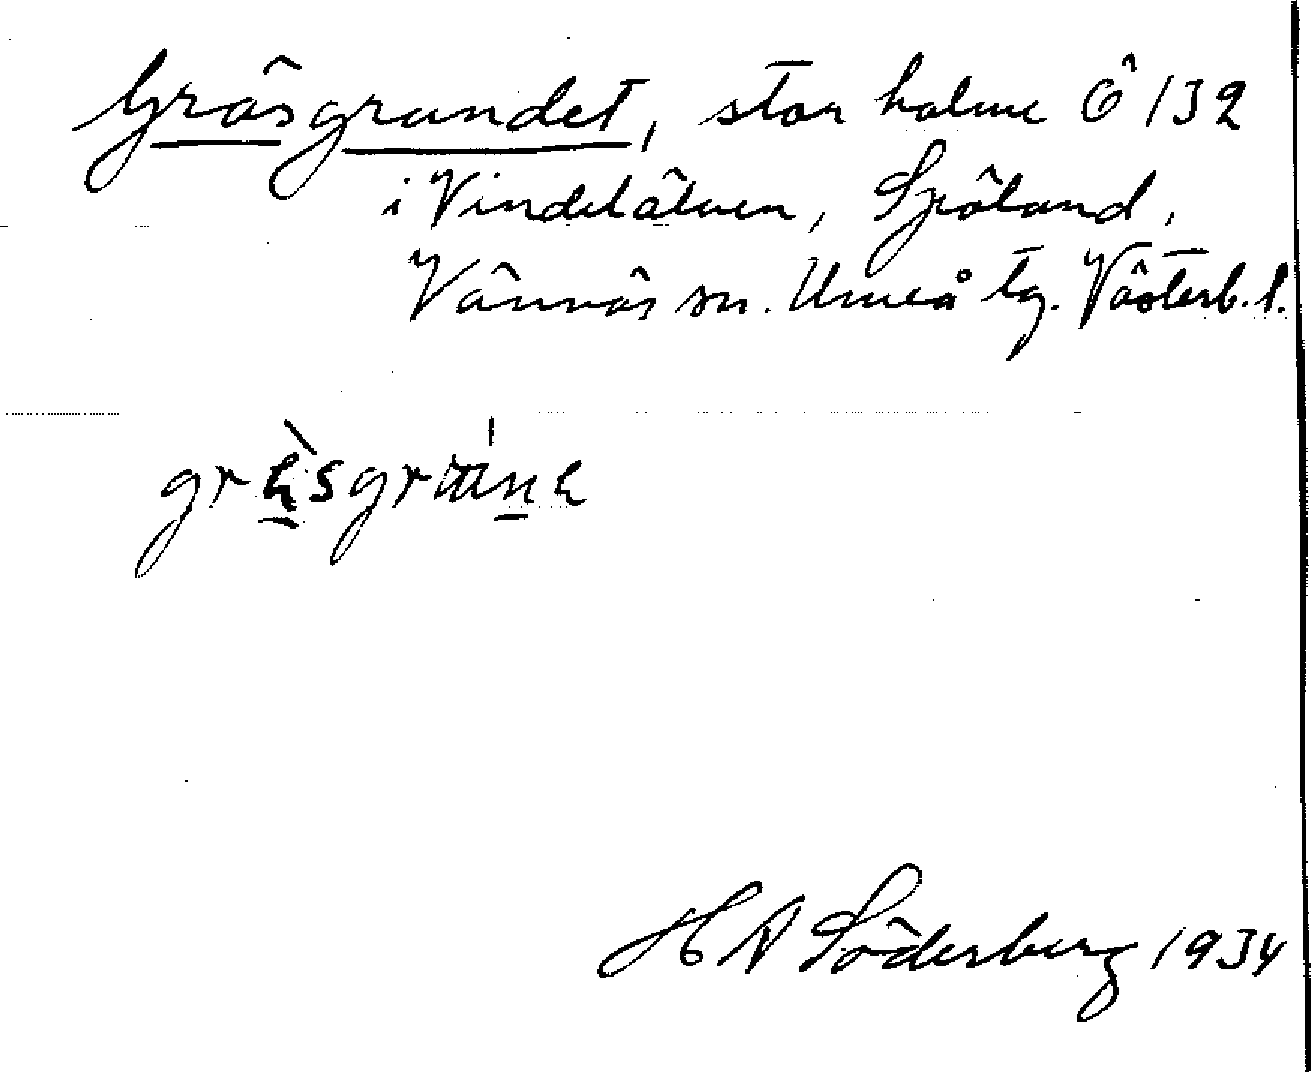 Gräsgrundet, stor holme Ö 132
i Vindelälven, Spöland,
Vännäs sn. Umeå tg. Västerb. l.
H A Söderberg 1934